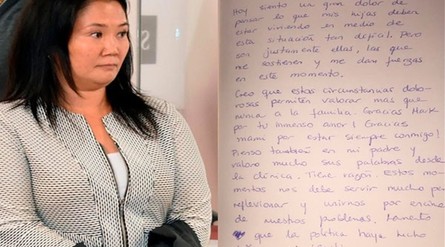 Hoy siento un gran dolor de
pensar lo que mis hijas deben
estar viviendo en medio de
esta situación tan difícil. Pero
son justamente ellas, las que
me sostienen y me dan fuerzas
en este momento.
Creo que estas circunstancias dolo-
rosas permiten valorar más que
nunca a la familia. Gracias Mark
por tu inmenso amor! Gracias
mami por estar siempre conmigo!
Pienso también en mi padre y
valoro mucho sus palabras desde
la clínica. Tiene razón. Estos mo-
mentos nos debe servir mucho para
reflexionar y unirnos por encima
de nuestros problemas. Lamento
que la política haya hecho